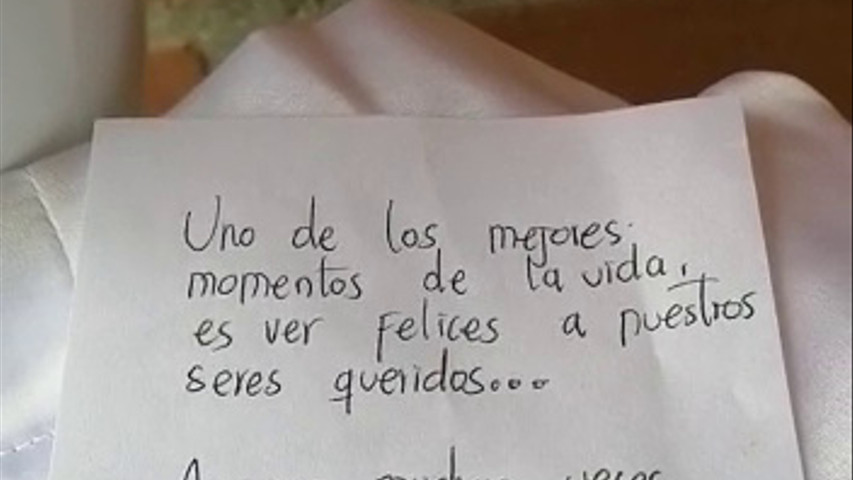 Uno de los mejores
momentos de la vida,
es ver felices a nuestros
seres queridos...